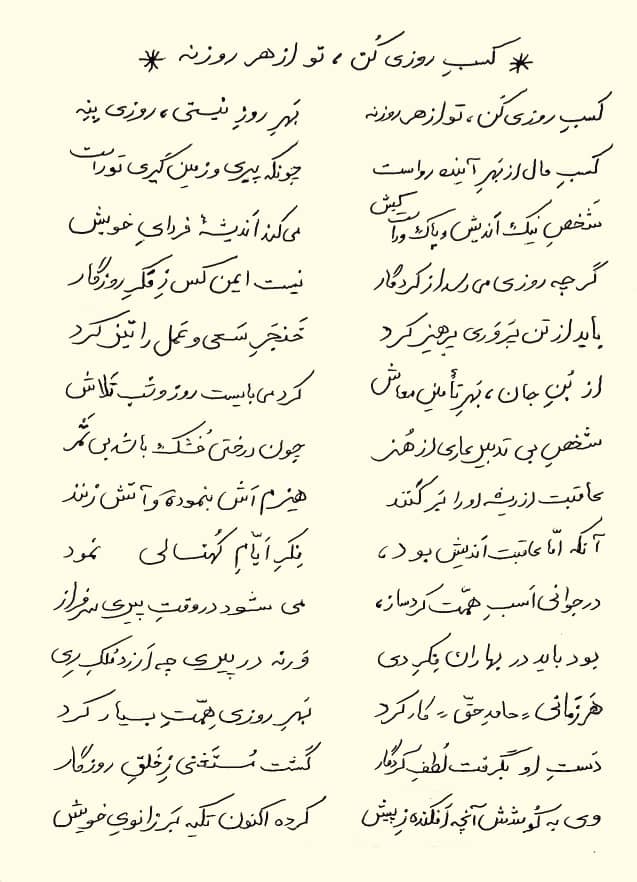 * کسبِ روزی کُن، تو از هر روزنه *
کسبِ روزی کُن، تو از هر روزنه بَهرِ روزِ نیستی، روزی بِنِه
کسبِ مال از بَهرِ آینده رواست چونکه پیری و زمین گیری تو راست
شَخصِ نیک اَندیش و پاک و راست کیش می کند اَندیشهٔ فردایِ خویش
گر چه روزی می رسد از کردگار نیست ایمن کس زِ فکرِ روزگار
باید از تن پَروَری پرهیز کرد خَنجَرِ سَعی و عَمل را تیز کرد
از بُنِ جان، بَهرِ تأمینِ معاش کرد می بایست روز و شب تَلاش
شَخصِ بی تدبیرِ عاری از هُنر چون درختی خُشک باشد بی ثَمَر
عاقبت از ریشه او را بَر کَنند هیزم اَش بنموده و آتش زنند
آنکه امّا عاقبت اَندیش بود، فِکرِ اَیّامِ کُهنسالی نمود
در جوانی اَسبِ همّت کرد ساز، می شود در وقتِ پیری سرفراز
بود باید در بهاران فِکرِ دی وَرنه در پیری چه اَرزد مُلکِ رِی
هَر زَمانی "حامدِ حَقّ" کار کرد بَهرِ روزی هِمّتِ بسیار کرد
دَستِ او بگرفت لُطفِ کردگار گَشت مُستَغنی زِ خَلقِ روزگار
وی به کوُشش آنچه اَفکنده زِ پیش کرده اکنون تکیه بَر زانویِ خویش